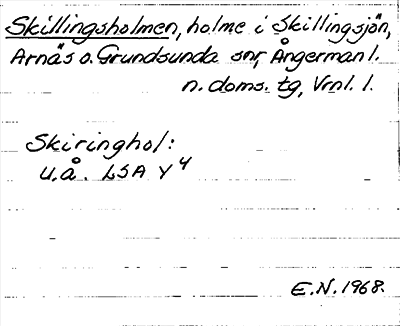 Skillingsholmen, holme i Skillingsjön,
Arnäs o. Grundsunda snr, Ångermanl.
n. doms. tg, Vrnl. l.
Skiringhol:
u.å. LSA Y 4
E.N. 1968.